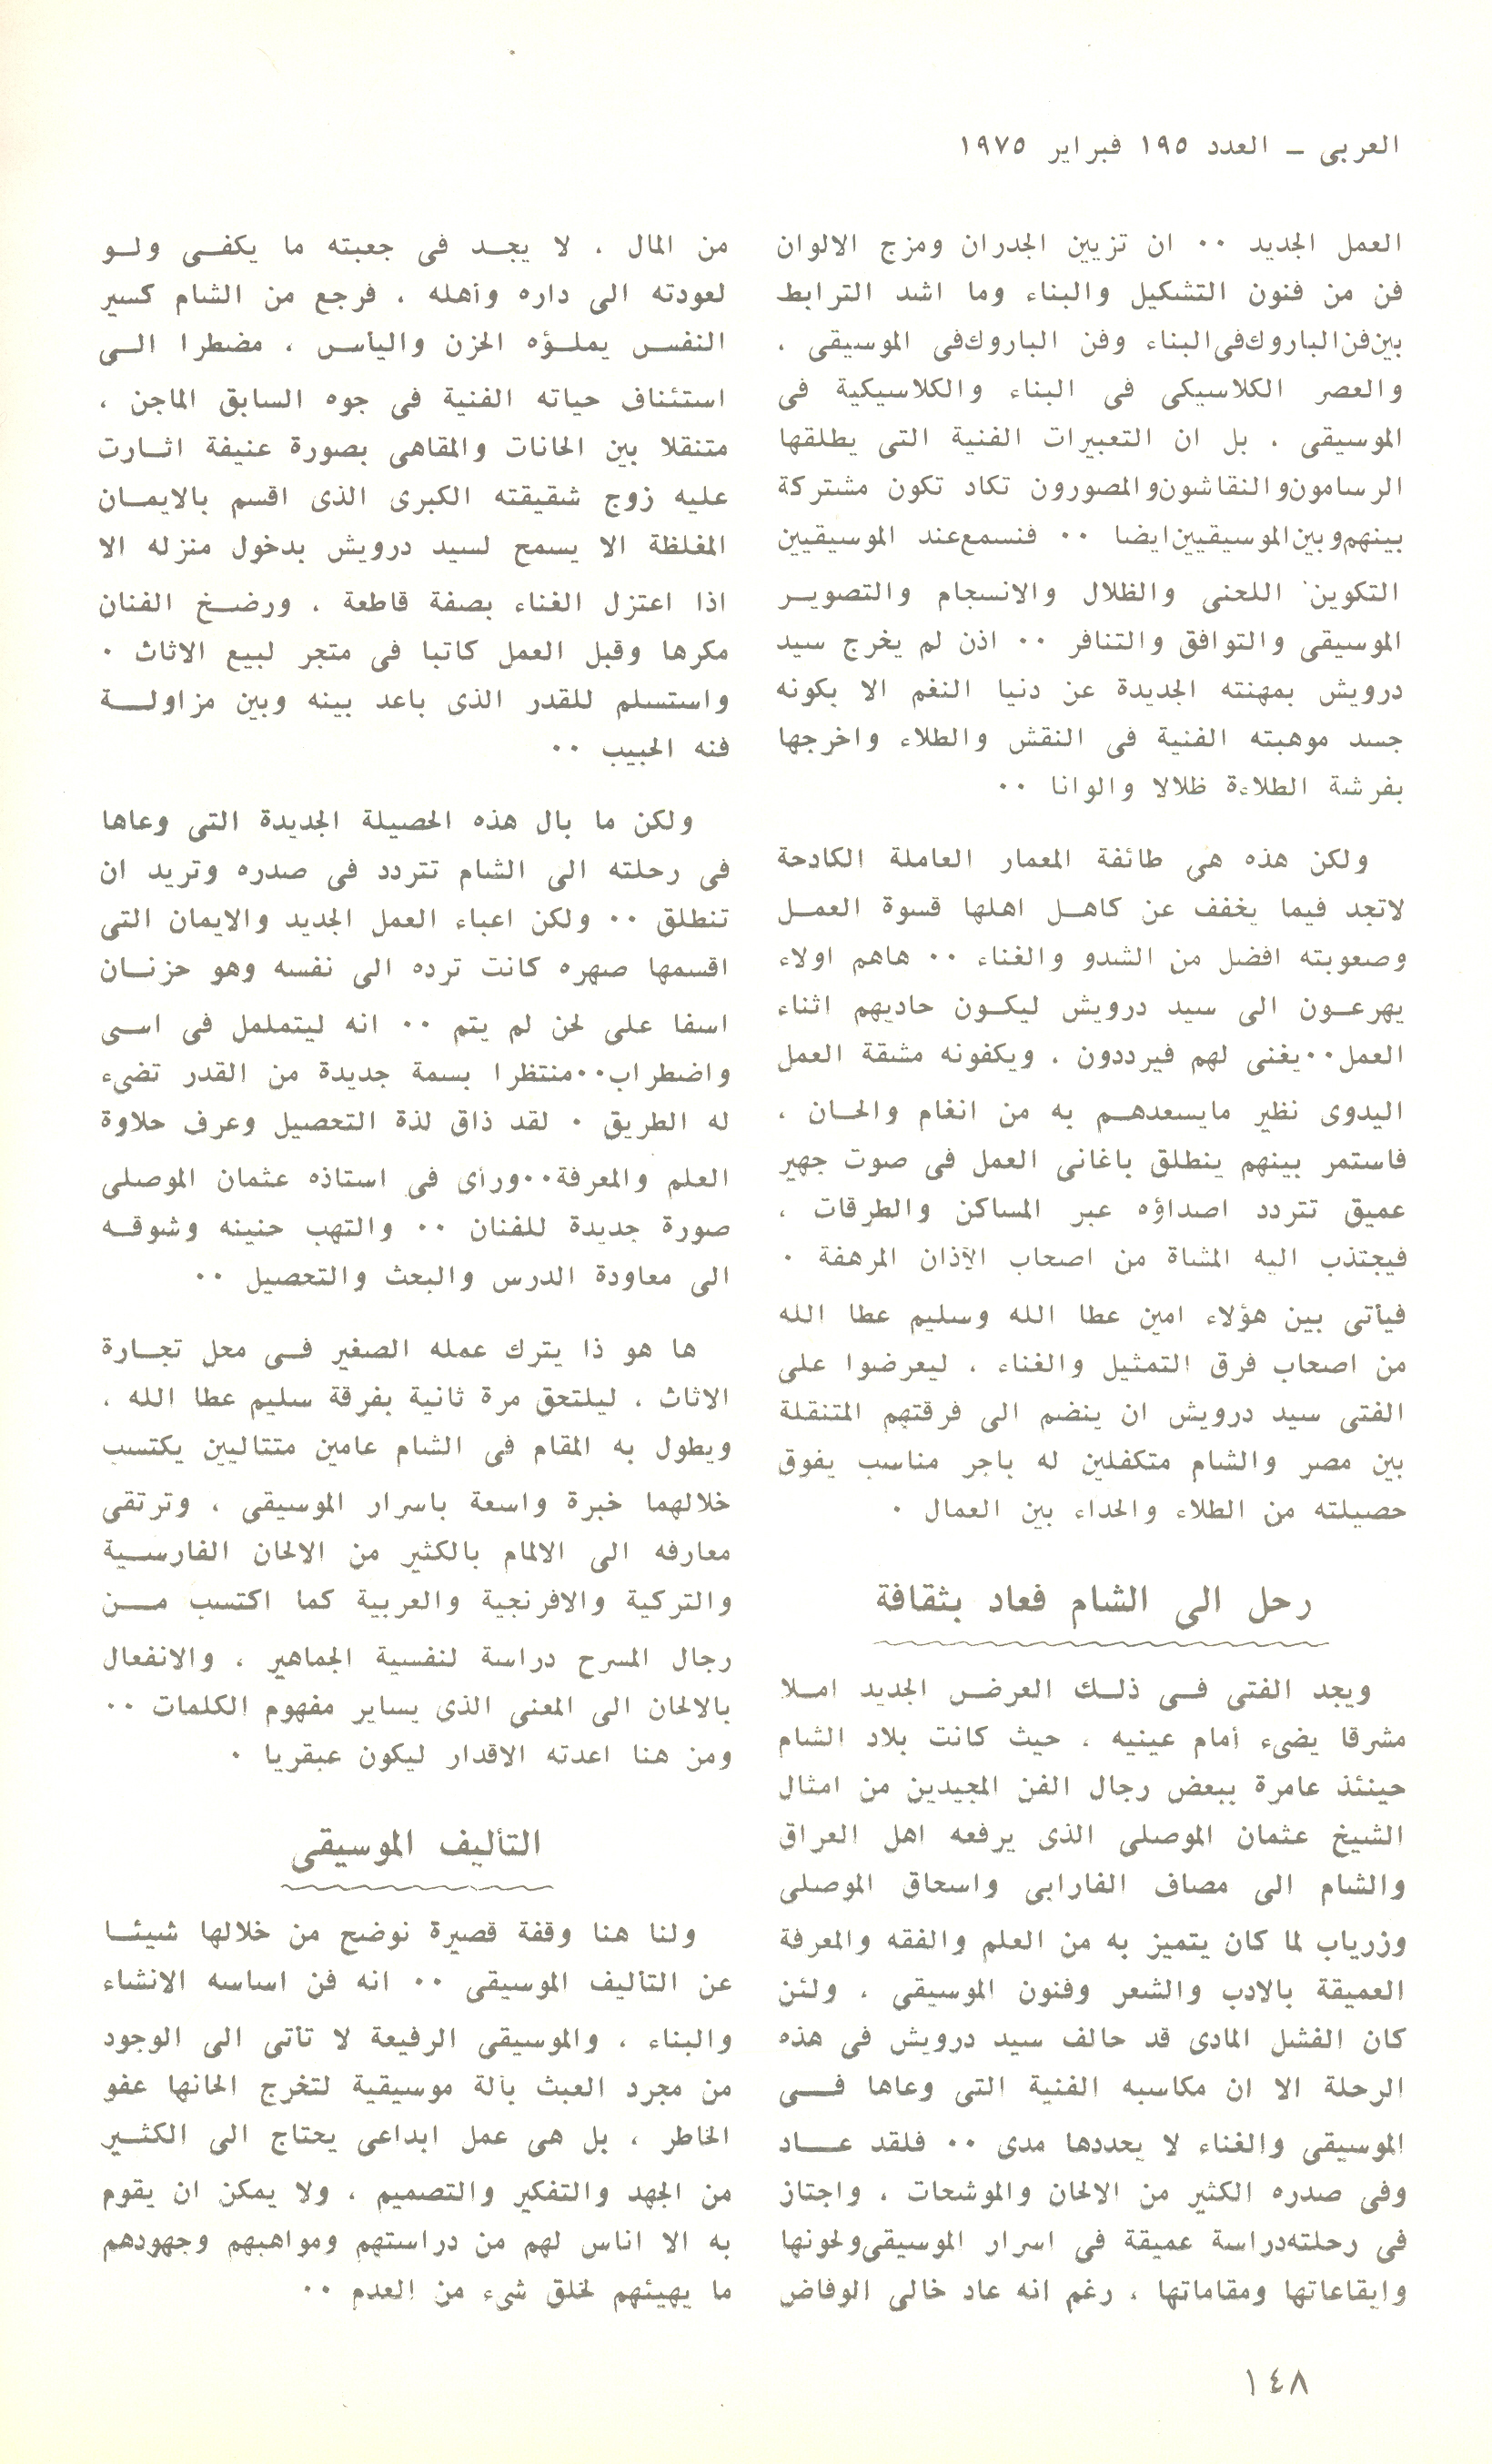 العربى ـ العدد ١٩٥ فبراير ١٩٧٥
العمل الجديد ٠٠ ان تزيين الجدران ومزج الالوان
فن من فنون التشكيل والبناء وما اشد الترابط
بين فن الباروك فى البناء وفن الباروك فى الموسيقى ،
والعصر الكلاسيكى فى البناء والكلاسيكية فى
الموسيقى ، بل ان التعبيرات الفنية التى يطلقها
الرسامون والنقاشون والمصورون تكاد تكون مشتركة
بينهم وبين الموسيقيين ايضا ٠٠ فنسمع عند الموسيقيين
التكوين اللحنى والظلال والانسجام والتصويـر
الموسيقى والتوافق والتنافر ٠٠ اذن لم يخرج سيد
درويش بمهنته الجديدة عن دنيا النغم الا بكونه
جسد موهبته الفنية فى النقش والطلاء واخرجها
بفرشة الطلاءة ظلالا والوانا ٠٠
ولكن هذه هى طائفة المعمار العاملة الكادحة
لاتجد فيما يخفف عن كاهـل اهلها قسوة العمـل
وصعوبته افضل من الشدو والغناء ٠٠ هاهم اولاء
يهرعـون الى سيد درويش ليكـون حاديهم اثناء
العمل٠٠يغنى لهم فيرددون ، ويكفونه مشقة العمل
اليدوى نظير مايسعدهـم به من انغام والحـان ،
فاستمر بينهم ينطلق باغانى العمل فى صوت جهير
عميق تتردد اصداؤه عبر المساكن والطرقات ،
فيجتذب اليه المشاة من اصحاب الآذان المرهفة ٠
فيأتى بين هؤلاء امين عطا الله وسليم عطا الله
من اصحاب فرق التمثيل والغناء ، ليعرضوا على
الفتى سيد درويش ان ينضم الى فرقتهم المتنقلة
بين مصر والشام متكفلين له باجر مناسب يفوق
حصيلته من الطلاء والحداء بين العمال ٠
رحل الى الشام فعاد بثقافة
ويجد الفتى فـى ذلـك العرض الجديد امـلا
مشرقا يضىء أمام عينيه ، حيث كانت بلاد الشام
حينئذ عامرة ببعض رجال الفن المجيدين من امثال
الشيخ عثمان الموصلى الذى يرفعه اهل العراق
والشام الى مصاف الفارابى واسحاق الموصلى
وزرياب لما كان يتميز به من العلم والفقه والمعرفة
العميقة بالادب والشعر وفنون الموسيقى ، ولئن
كان الفشل المادى قد حالف سيد درويش فى هذه
الرحلة الا ان مكاسبه الفنية التى وعاها فـى
الموسيقى والغناء لا يحددها مدى ٠٠ فلقد عـاد
وفى صدره الكثير من الالحان والموشحات ، واجتاز
فى رحلته دراسة عميقة فى اسرار الموسيقى ولحونها
وايقاعاتها ومقاماتها ، رغم انه عاد خالى الوفاض
من المال ، لا يجـد فى جعبته ما يكفـى ولـو
لعودته الى داره وأهله ، فرجع من الشام كسير
النفس يملـؤه الحزن واليأس ، مضطرا الـى
استئناف حياته الفنية فى جوه السابق الماجن ،
متنقلا بين الحانات والمقاهى بصورة عنيفة اثـارت
عليه زوج شقيقته الكبرى الذى اقسم بالايمـان
المغلظة الا يسمح لسيد درويش بدخول منزله الا
اذا اعتزل الغناء بصفة قاطعة ، ورضـخ الفنان
مكرها وقبل العمل كاتبا فى متجر لبيع الاثاث ٠
واستسلم للقدر الذى باعد بينه وبين مزاولـة
فنه الحبيب ٠٠
ولكن ما بال هذه الحصيلة الجديدة التى وعاها
فى رحلته الى الشام تتردد فى صدره وتريد ان
تنطلق ٠٠ ولكن اعباء العمل الجديد والايمان التى
اقسمها صهره كانت ترده الى نفسه وهو حزنـان
اسفا على لحن لم يتم ٠٠ انه ليتململ فى اسـى
واضطراب٠٠منتظرا بسمة جديدة من القدر تضىء
له الطريق ٠ لقد ذاق لذة التحصيل وعرف حلاوة
العلم والمعرفة٠٠ورأى فى استاذه عثمان الموصلى
صورة جديدة للفنان ٠٠ والتهب حنينه وشوقـه
الى معاودة الدرس والبحث والتحصيل ٠٠
ها هو ذا يترك عمله الصغير فـى محل تجـارة
الاثاث ، ليلتحق مرة ثانية بفرقة سليم عطا الله ،
ويطول به المقام فى الشام عامين متتاليين يكتسب
خلالهما خبرة واسعة باسرار الموسيقى ، وترتقى
معارفه الى الالمام بالكثير من الالحان الفارسـية
والتركية والافرنجية والعربية كما اكتسب مـن
رجال المسرح دراسة لنفسية الجماهير ، والانفعال
بالالحان الى المعنى الذى يساير مفهوم الكلمات ٠٠
ومن هنا اعدته الاقدار ليكون عبقريا ٠
التأليف الموسيقى
ولنا هنا وقفة قصيرة نوضح من خلالها شيئـا
عن التأليف الموسيقى ٠٠ انه فن اساسه الانشاء
والبناء ، والموسيقى الرفيعة لا تأتى الى الوجود
من مجرد العبث بآلة موسيقية لتخرج الحانها عفو
الخاطر ، بل هى عمل ابداعى يحتاج الى الكثـير
من الجهد والتفكير والتصميم ، ولا يمكن ان يقوم
به الا اناس لهم من دراستهم ومواهبهم وجهودهم
ما يهيئهم لخلق شىء من العدم ٠٠
١٤٨